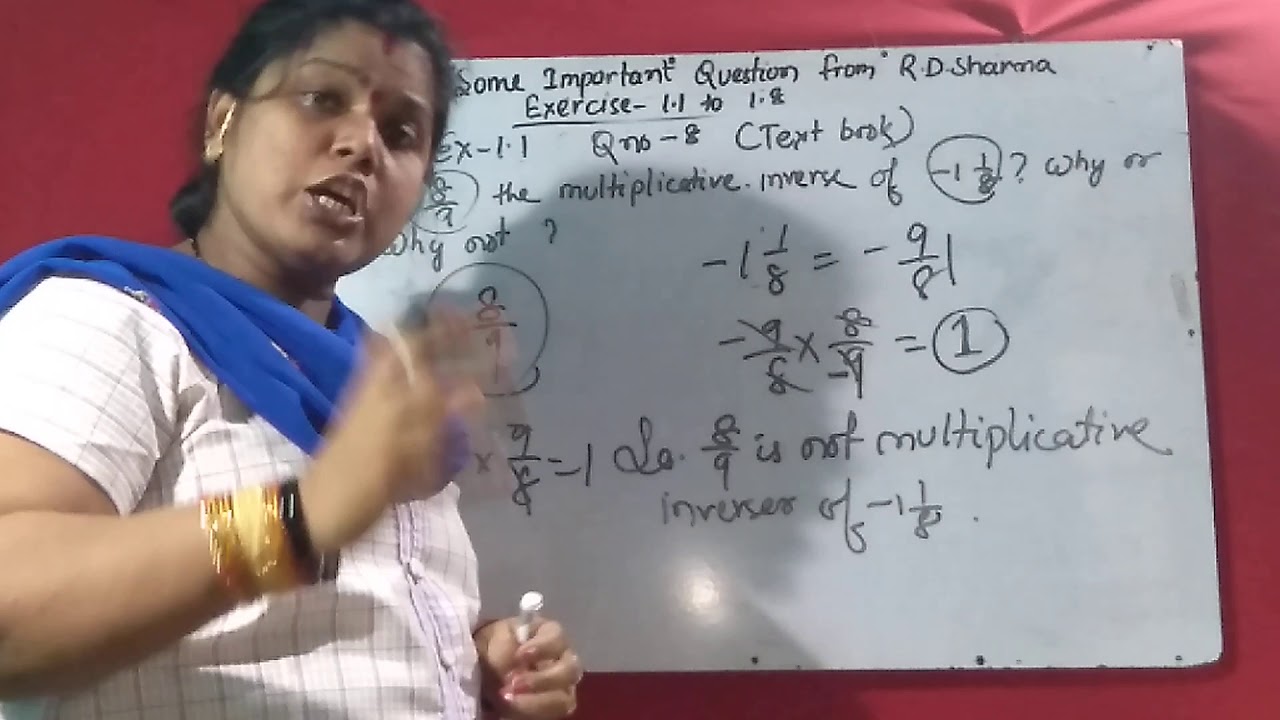 Some Important Question from R.D.Sharma
Exercise- 1.1 to 1.8
Ex-1.1 Qno-8 (Text book)
8/9 the multiplicative inverse of -1 1/8? Why or
Why not ?
-1 1/8 = - 9/8
8/9
- 9/8 × 8/-9 = 1
× 9/8 = 1 So. 8/9 is not multiplicative
inverser of -1 1/8 .